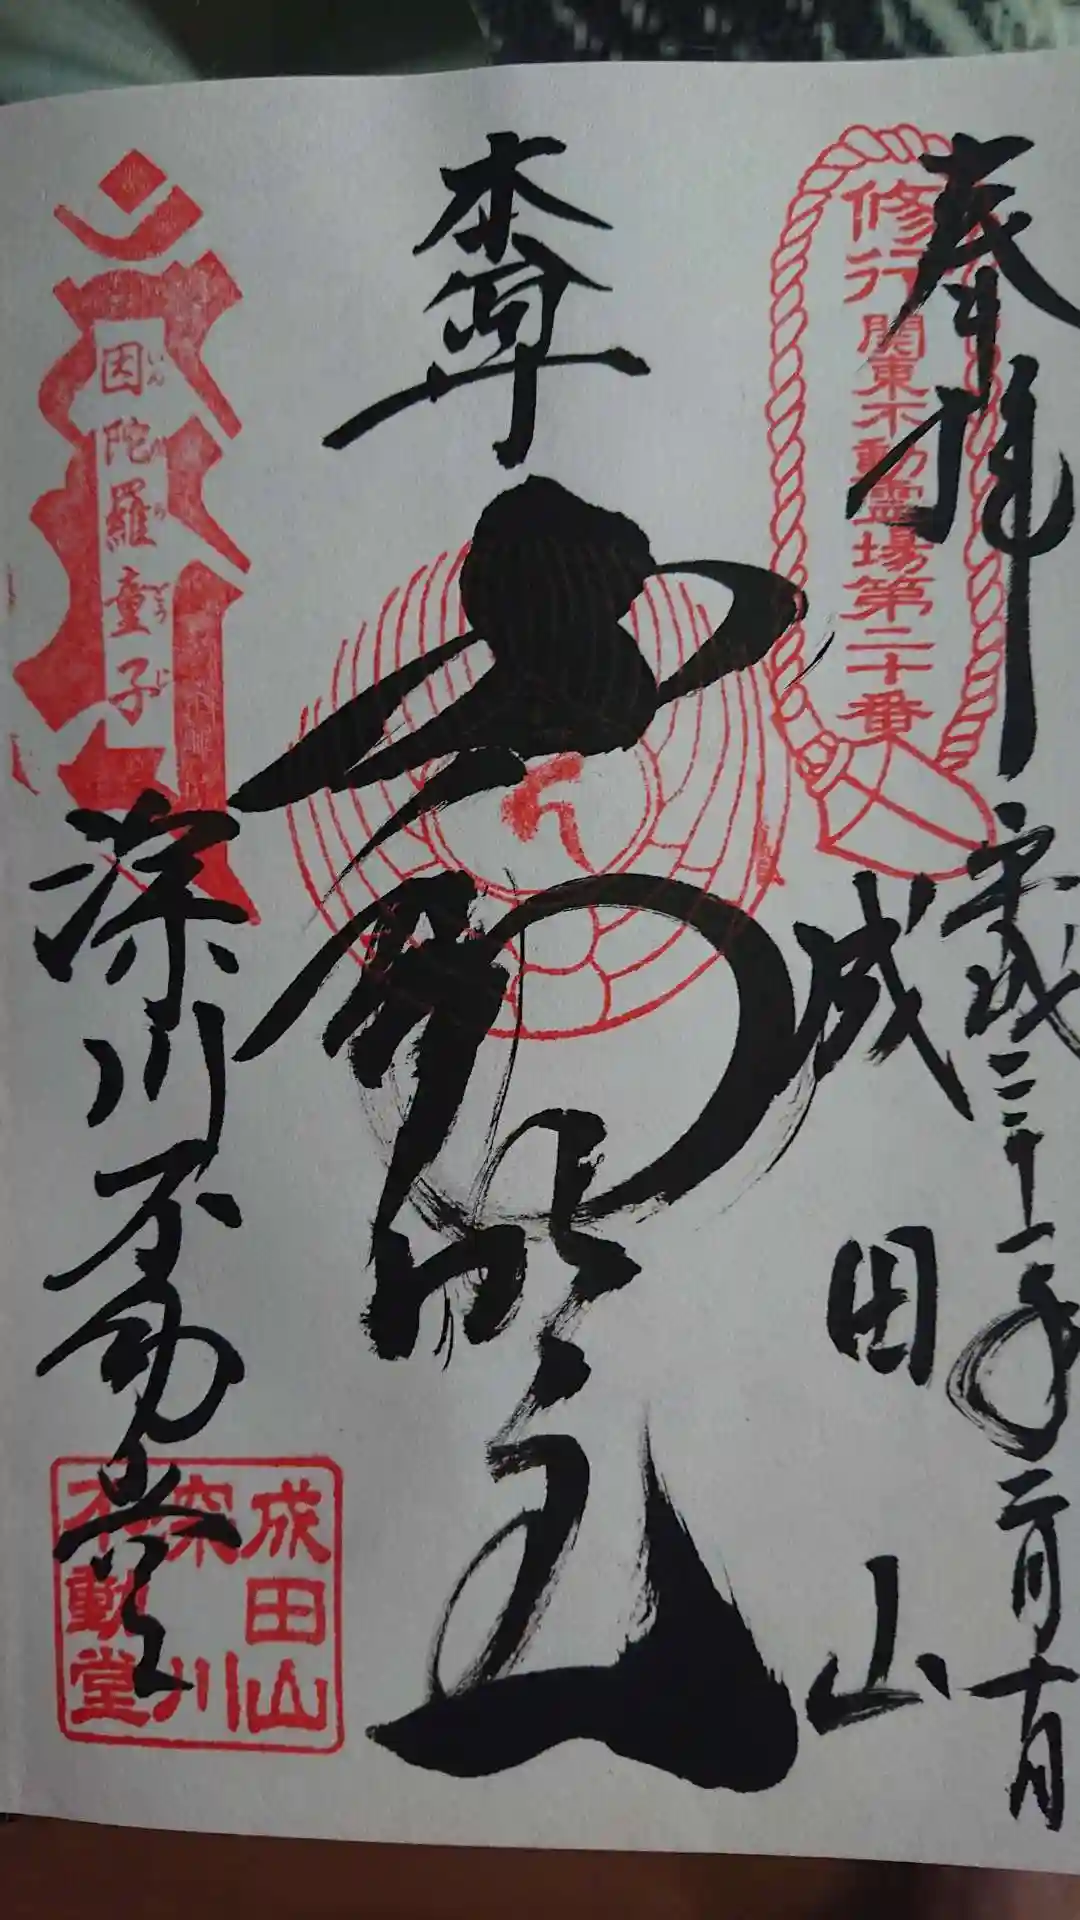 奉拝
平成三十一年二月十日
修行 関東不動霊場第二十番
成田山
本尊
不動明王
因陀羅童子
いんだらどうじ
深川不動堂
成田山
深川
不動堂